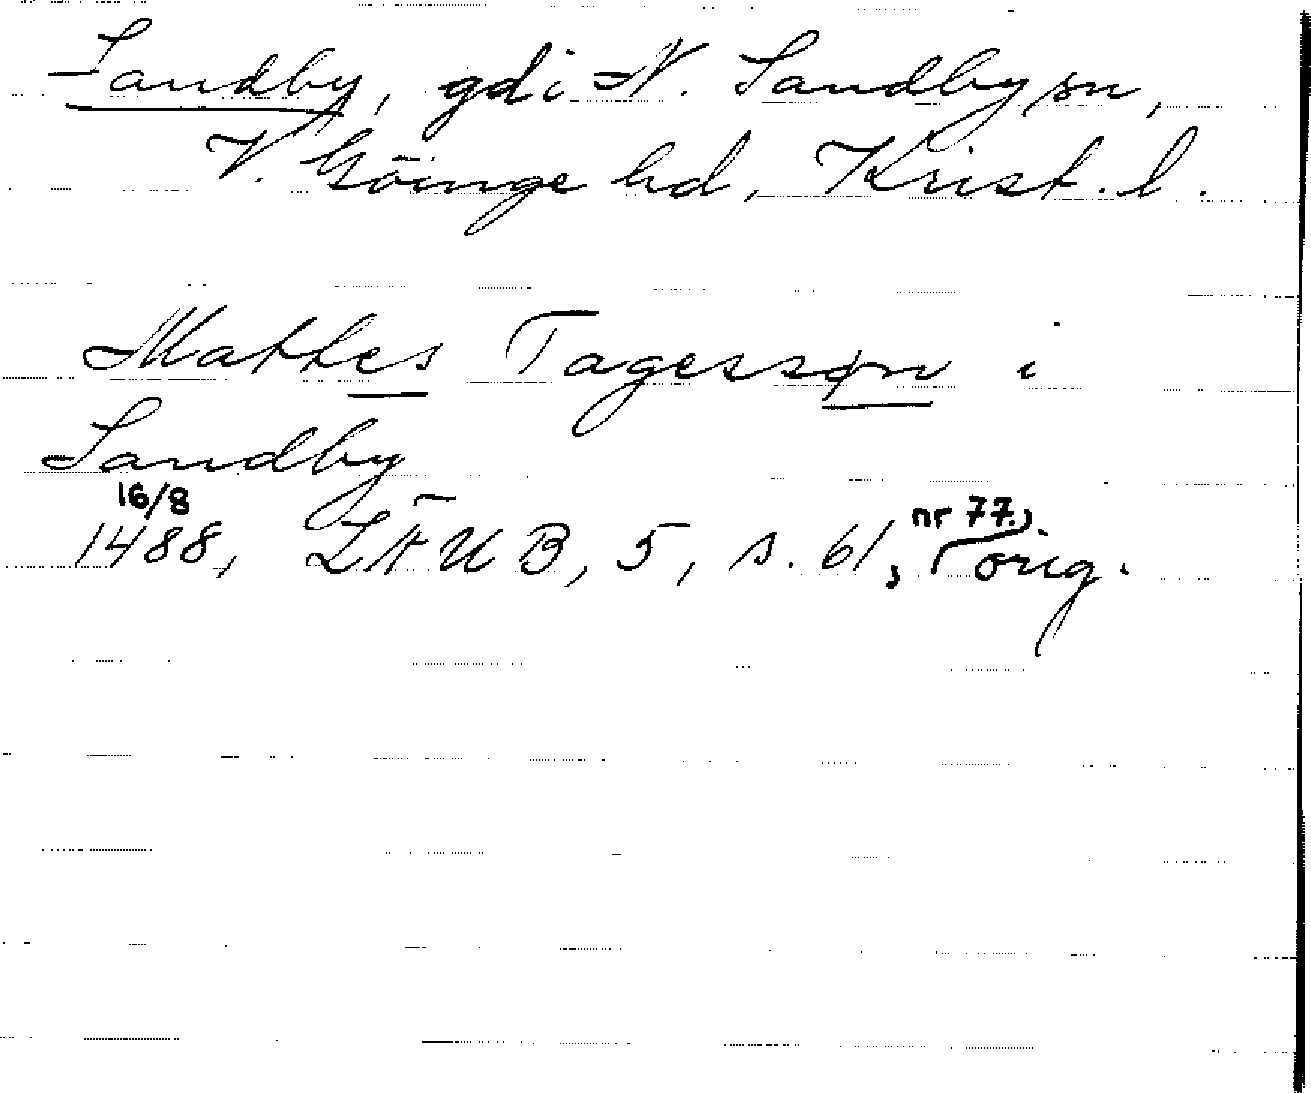 Sandby, gd i N. Sandby sn,
V. Göinge hd, Krist. l.
Mattes Tagessøn i
Sandby
16/8
1488, LÄUB, 5, s. 61, nr 77., orig.